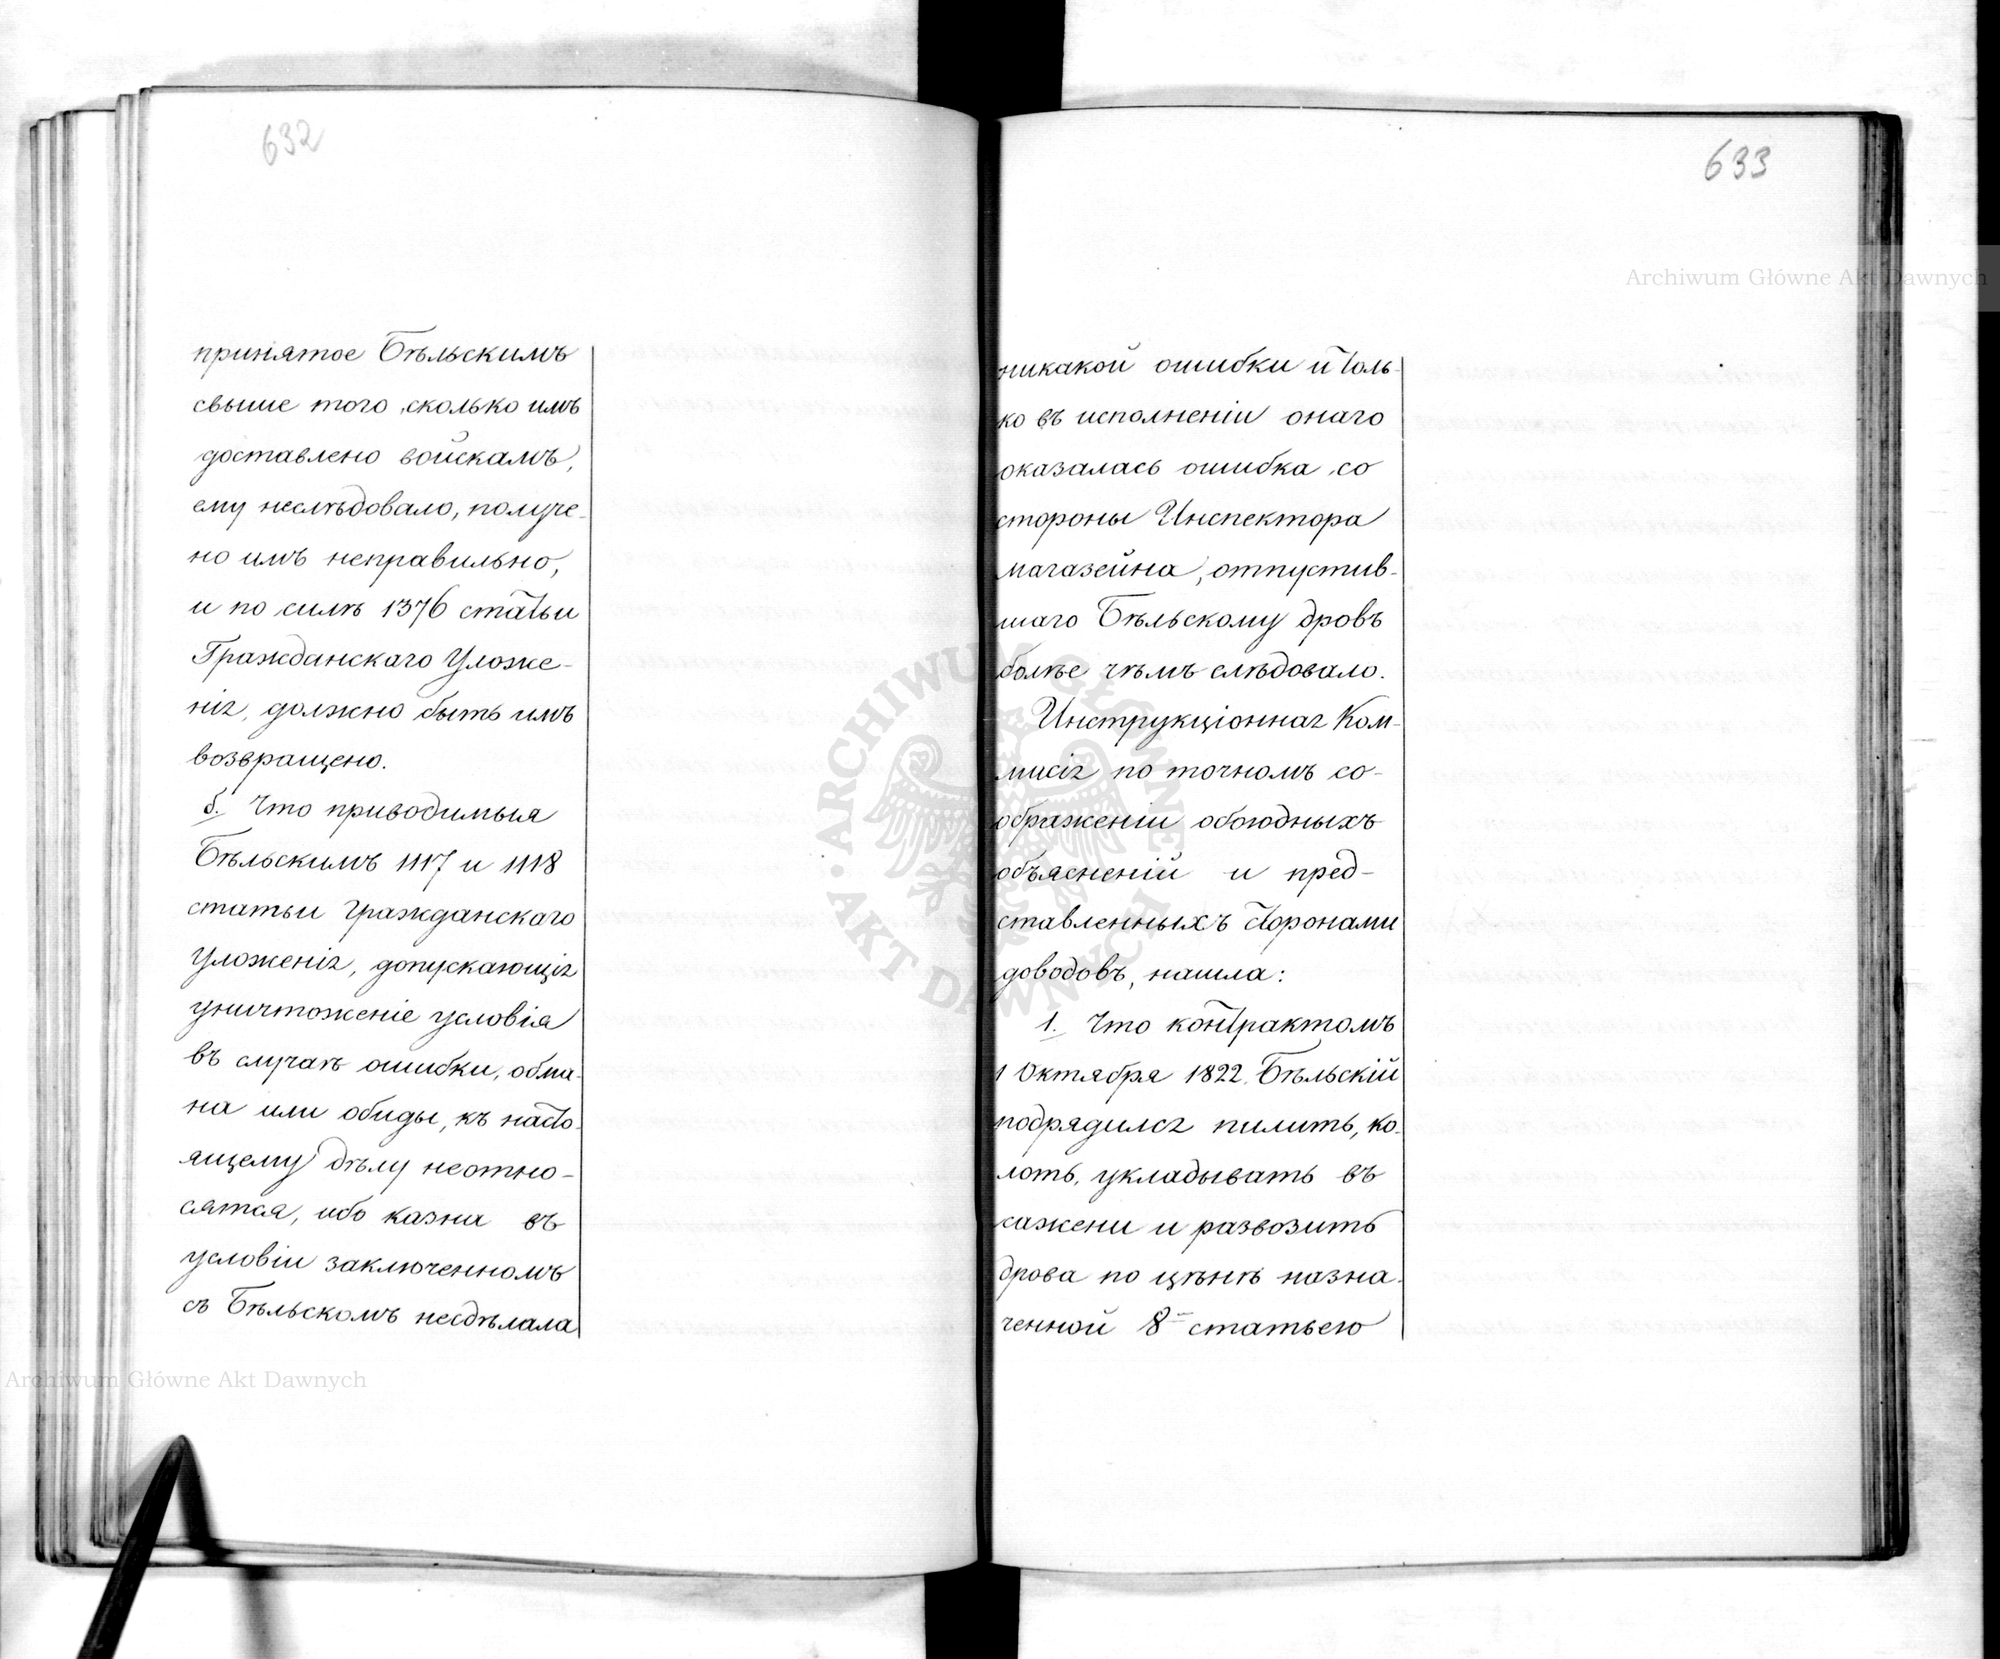 632
принятое Бѣльскимъ
свыше того, сколько имъ
доставлено войскамъ,
ему неслѣдовало, получе-
но имъ неправильно,
и по силѣ 1376 статьи
Гражданскаго Уложе-
нія, должно быть имъ
возвращено.
б. Что приводимыя
Бѣльскимъ 1117 и 1118
статьи Гражданскаго
Уложенія, допускающія
уничтоженіе условія
въ случаѣ ошибки, обма-
на или обиды, къ насто-
ящему дѣлу неотно-
сятся, ибо казна въ
условіи заключенномъ
съ Бѣльскомъ несдѣлала
633
никакой ошибки и толь-
ко въ исполненіи онаго
оказалась ошибка со
стороны Инспектора
магазейна, отпустив-
шаго Бѣльскому дровъ
болѣе чѣмъ слѣдовало.
Инструкціонная Ком-
мисія по точномъ со-
ображеніи обоюдныхъ
объясненій и пред-
ставленныхъ сторонами
доводовъ, нашла:
1. Что контрактомъ
1 Октября 1822. Бѣльскій
подрядился пилить, ко-
лоть, укладывать въ
сажени и развозить
дрова по цѣнѣ назна-
ченной 8 статьею
Archiwum Główne Akt Dawnych
Archiwum Główne Akt Dawnych
ARCHIWUM GŁÓWNE AKT DAWNYCH